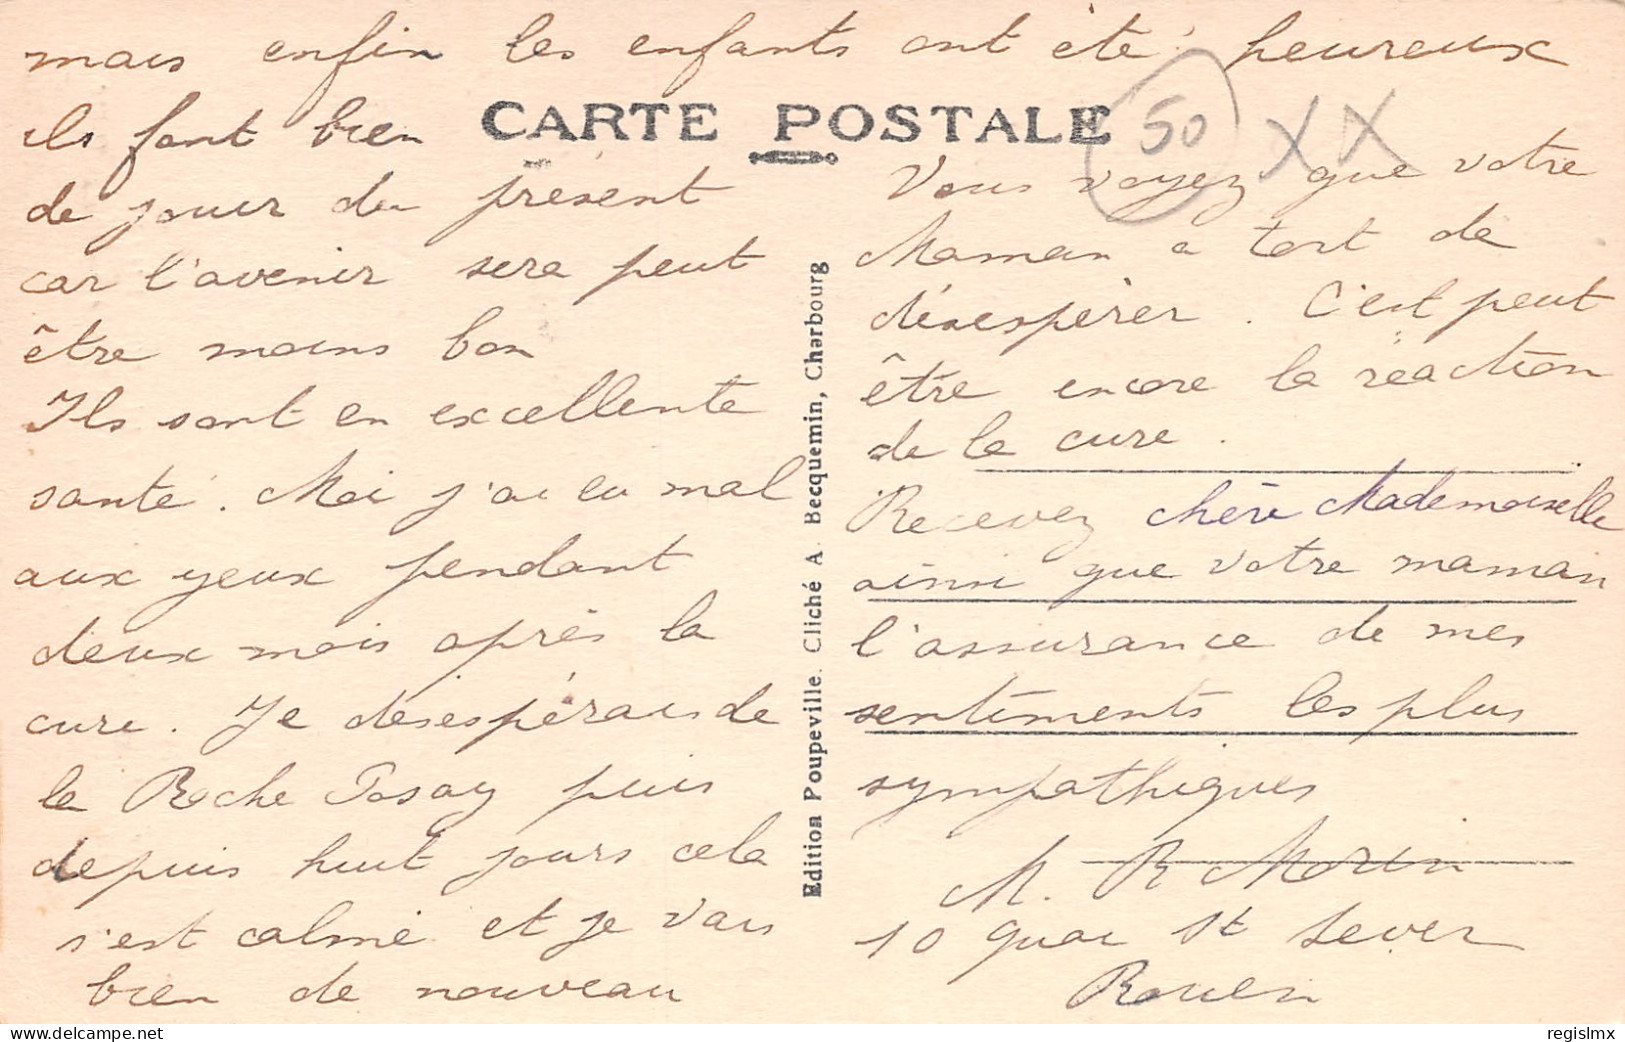 mais enfin les enfants ont été heureux
ils font bien
de jouir du présent
car l'avenir sera peut
être moins bon
Ils sont en excellente
santé. Moi j'ai eu mal
aux yeux pendant
deux mois après la
cure. Je désespérais de
la Roche Posay puis
depuis huit jours cela
s'est calmé et je vais
bien de nouveau
CARTE POSTALE
50 XX
Edition Poupeville. Cliché A. Becquemin, Charbourg
Vous voyez que votre
Maman a tort de
désespérer. C'est peut
être encore la réaction
de la cure.
Recevez chère Mademoiselle
ainsi que votre maman
l'assurance de mes
sentiments les plus
sympathiques
M. R Morin
10 quai St Sever
Rouen
delcampe.net
regislmx